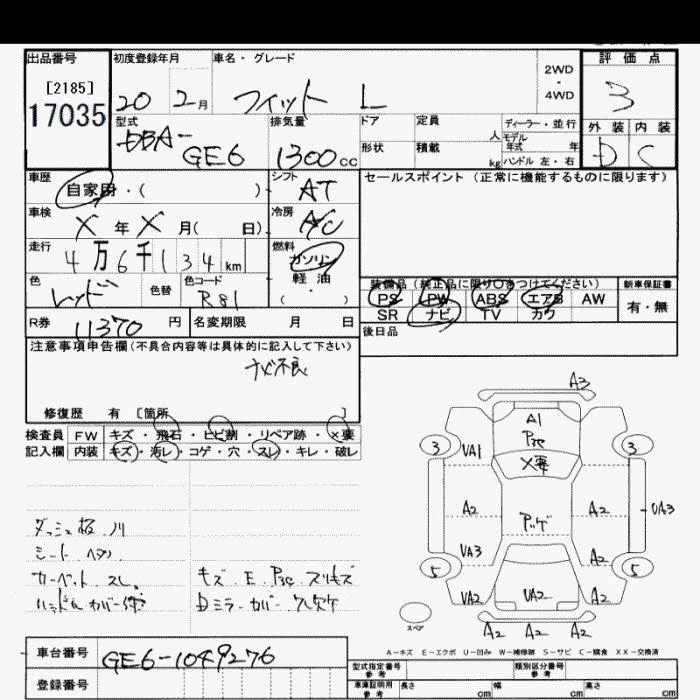 出品番号 初度登録年月 車名・グレード 評価点
[2185]
17035
20 2月 フィット L
2WD
・
4WD
3
型式 排気量 ドア 定員 人 ディーラー・並行
モデル
年式 年
外装 内装
DBA-
GE6 1300cc 形状 積載 kg ハンドル 左・右 D C
車歴 自家用・( ) シフト AT セールスポイント (正常に機能するものに限ります)
車検 X年X月( 日) 冷房 A/C
走行 4万6千134km 燃料 ガソリン
軽油
( ・ )
色 レッド 色替 色コード R81
装備品 (純正品に限り○をつけてください) 新車保証書
PS PW ABS エアB AW 有・無
SR ナビ TV カワ
R券 11370円 名変期限 月 日 後日品
注意事項申告欄(不具合内容等は具体的に記入して下さい)
ナビ不良
修復歴 有 [箇所 ]
検査員 FW キズ・飛石・ヒビ割・リペア跡・X要
記入欄 内装 キズ・汚レ・コゲ・穴・スレ・キレ・破レ
シート
カーペット スレ
キズ・E・
A3
A1
X要
3 VA1 3
A2 A2 UA3
VA3 A2
5 5
VA2 UA2 A2
A2 A2 A2
スペア
A-キズ E-エクボ U-凹み W-補修跡 S-サビ C-腐食 XX-交換済
車台番号 GE6-1049276
登録番号
型式指定番号
参考
類別区分番号
参考
車庫証明用
参考
長さ cm 幅 cm 高さ cm